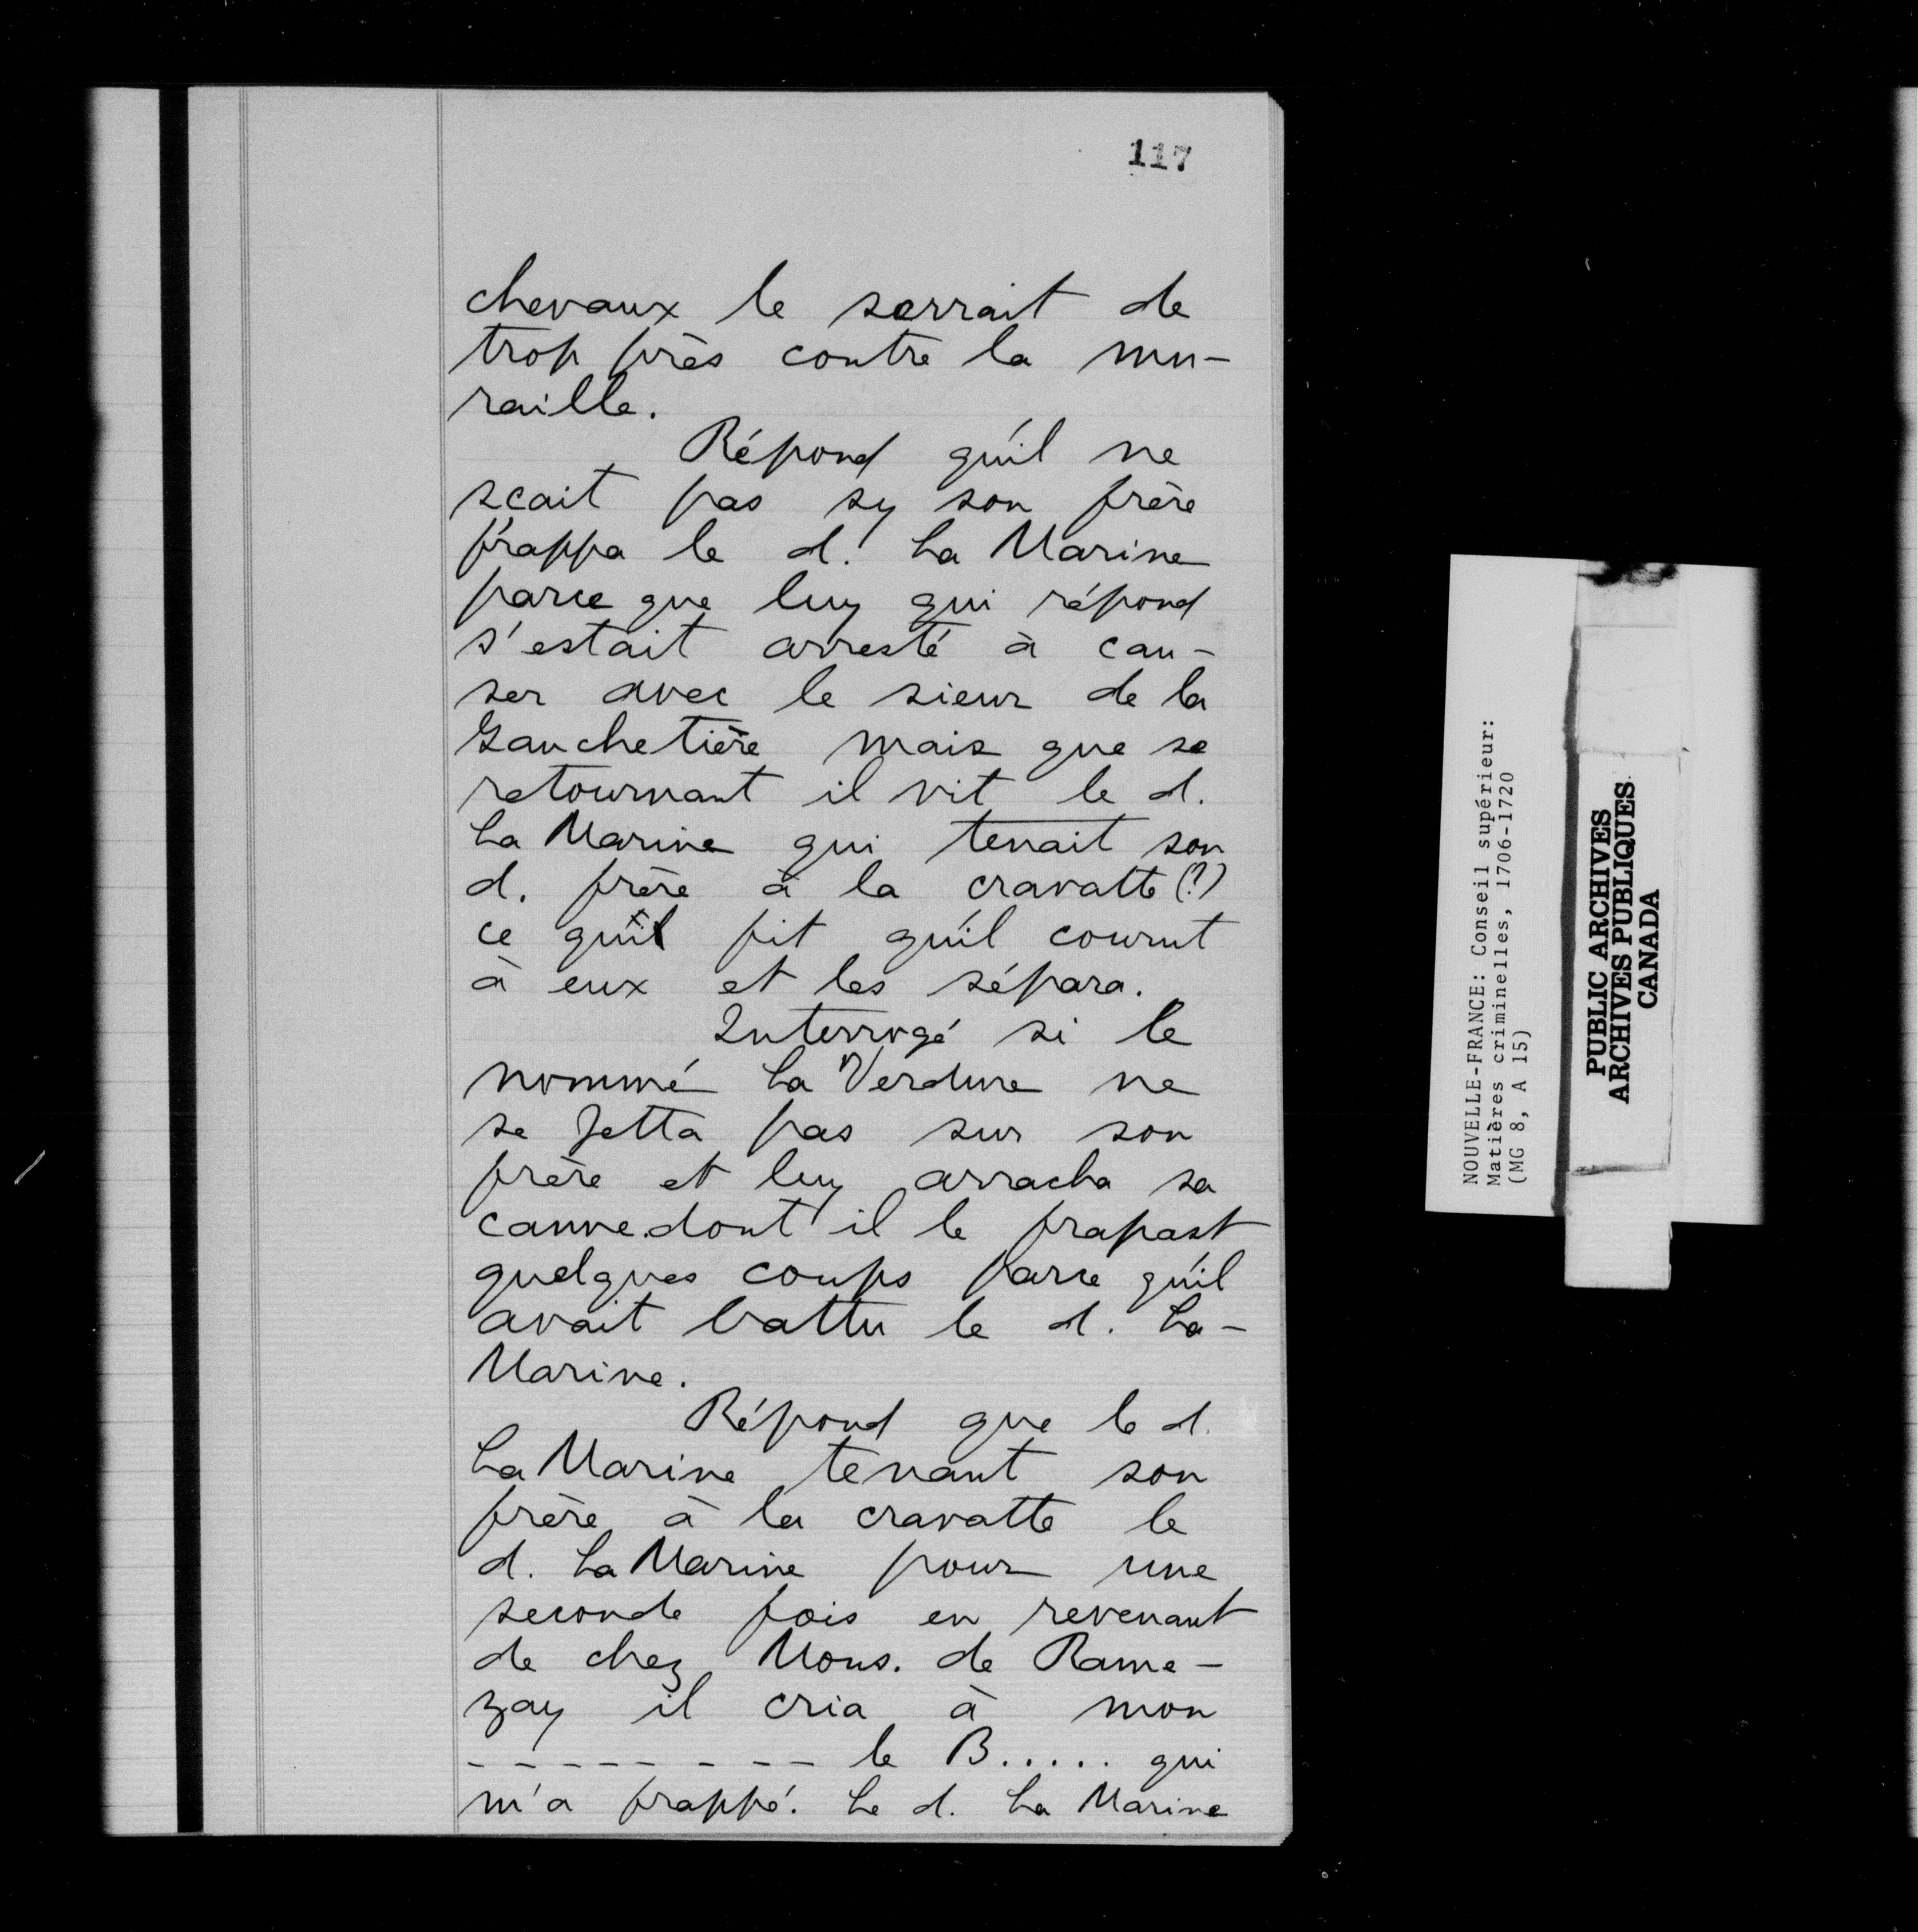 117
chevaux le serrait de
trop près contre la mu-
raille.
Répond qu'il ne
scait pas sy son frère
frappa le d. La Marine
parce que luy qui répond
s'estait arresté à cau-
ser avec le sieur de la
Gauchetière mais que se
retournant il vit le d.
La Marine qui tenait son
d. frère à la cravatte (?)
ce qu'il fit qu'il courut
à eux et les sépara.
Interrogé si le
nommé La Verdure ne
se jetta pas sur son
frère et luy arracha sa
canne dont il le frapast
quelques coups parce qu'il
avait battu le d. La-
Marine.
Répond que le d.
La Marine tenant son
frère à la cravatte le
d. La Marine pour une
seconde fois en revenant
de chez Mons. de Rame-
zay il cria à mon
- - - - - - - - - le B..... qui
m'a frappé. Le d. La Marine
NOUVELLE-FRANCE: Conseil supérieur:
Matières criminelles, 1706-1720
(MG 8, A 15)
PUBLIC ARCHIVES
ARCHIVES PUBLIQUES
CANADA